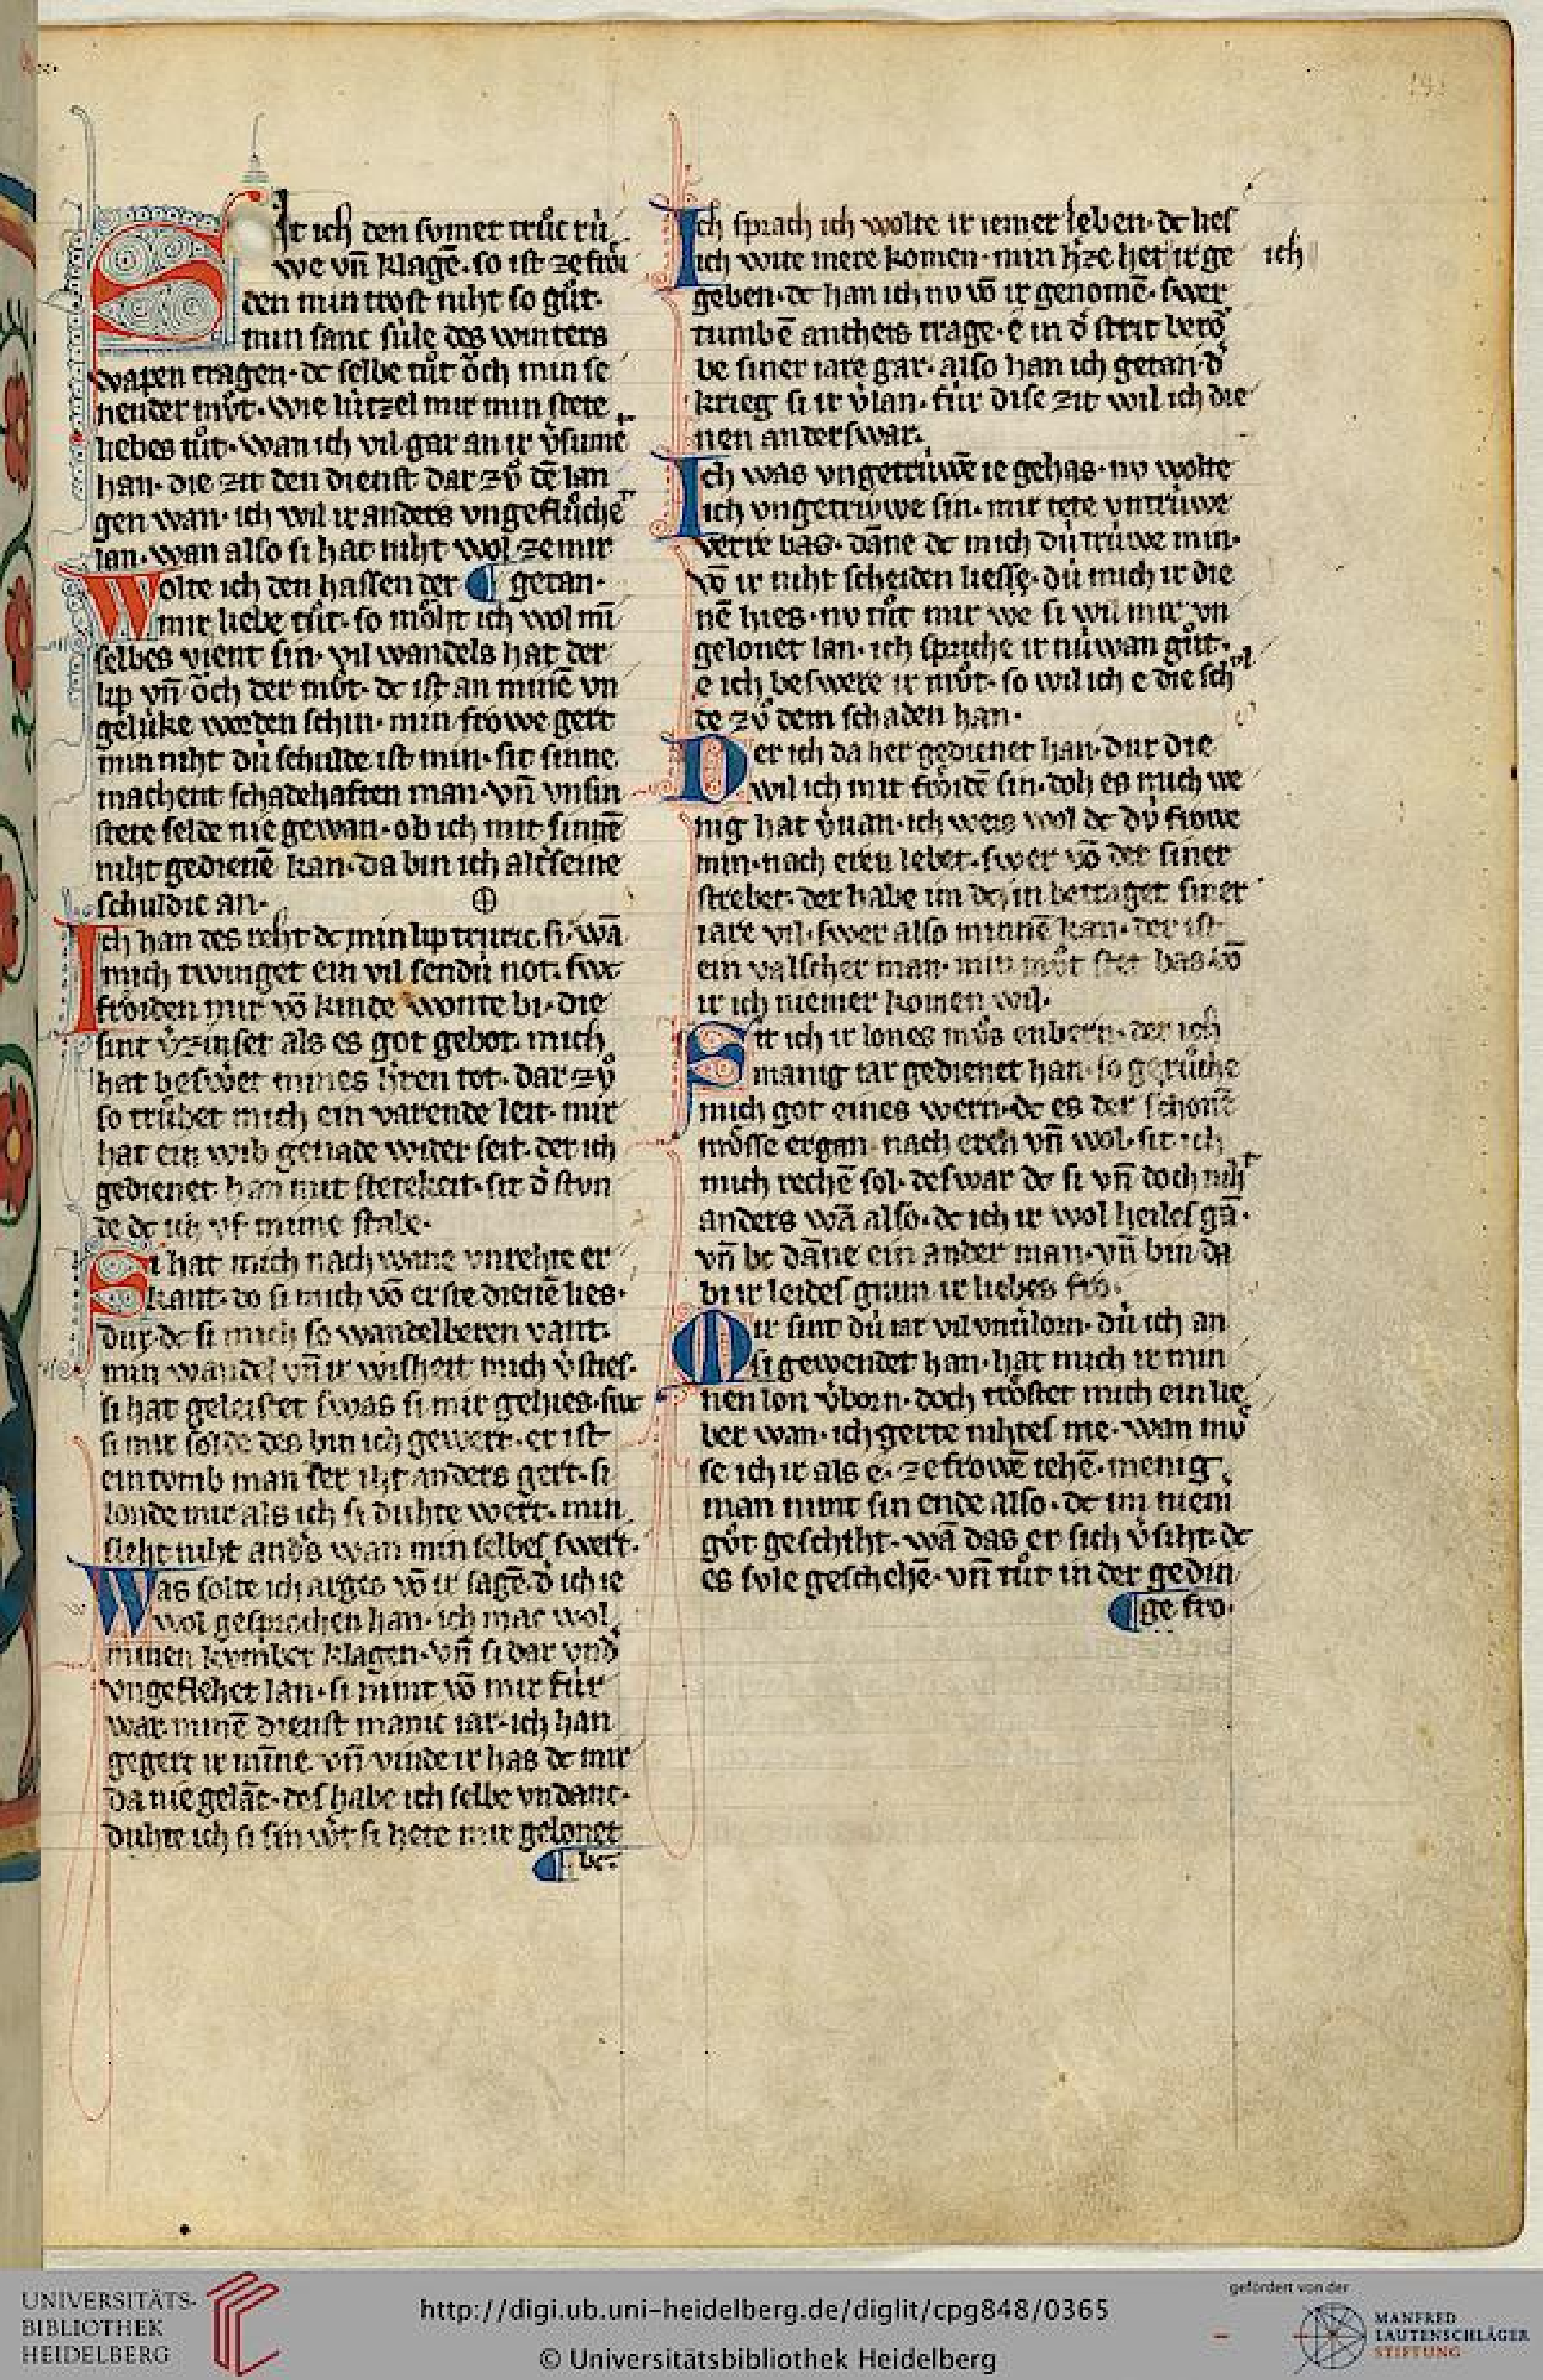 SIt ich den svmer truͦc rú
we vn̄ klagē. so ist ze froͤi
den min trost niht so guͦt.
min sanc súle des winters
wapen tragen. dc selbe tuͦt oͮch min se
neder muͦt. wie lútzel mir min stete
liebes tuͦt. wan ich vil gar an ir v̓sumet
han. die zit den dienst dar zuͦ dē lan
gen wan. ich wil ir anders vngefluͦchet
lan. wan also si hat niht wol ze mir
¶ getan.
Wolte ich den hassen der
mir liebe tuͦt. so moͤht ich wol mī
selbes vient sin. vil wandels hat der
lip vn̄ oͮch der muͦt. dc ist an minē vn
gelúke worden schin. min frowe gert
min niht dú schulde ist min. sit sinne
machent schadehaften man. vn̄ vnsin
stete selde nie gewan. ob ich mit sinnē
niht gedienē kan. da bin ich alterseine
schuldic an.
Ich han des reht dc min lip truric si. wā
mich twinget ein vil sendú not. swc
froͤiden mir vō kinde wonte bi. die
sint v̓zinset als es got gebot. mich
hat beswͤret mines h̓ren tot. dar zuͦ
so truͤbet mich ein varende leit. mir
hat ein wib genade wider seit. der ich
gedienet han mit stetekeit. sit d̓ stvn
de dc ich vf mime stabe.
Si hat mich nach wane vnrehte er
kant. do si mich vō erste dienē lies.
dur dc si mich so wandelberen vant.
min wandel vn̄ ir wisheit mich v̓sties.
si hat geleistet swas si mir gehies. swc
si mir solde des bin ich gewert. er ist
ein tomb man der iht anders gert. si
londe mir als ich si duhte wert. min
sleht niht and̓s wan min selbes swert.
Was solte ich arges vō ir sagē. d̓ ich ie
wol gesprochen han. ich mac wol
minen kvmber klagen. vn̄ si dar vnd̓
vngeflehet lan. si nimt vō mir fúr
war minē dienst manic iar. ich han
gegert ir minne vn̄ vinde ir has dc mir
da nie gelāc. des habe ich selbe vndanc.
duhte ich si sin wͤrt si hete mir gelonet
¶ bc.
Ich sprach ich wolte ir iemer leben. dc lies
ich wite mere komen. min h̓ze het ir ge ich
geben. dc han ich nv vō ir genomē. swer
tumbē antheis trage. ê in d̓ strit berō
be siner iare gar. also han ich getan. d̓
krieg si ir v̓lan. fúr dise zit wil ich die
nen anderswar.
Ich was vngetrúwē ie gehas. nv wolte
ich vngetrúwe sin. mir tete vntrúwe
verre bas. dāne dc mich dú trúwe min.
vō ir niht scheiden liesse. dú mich ir die
nē hies. nv tuͦt mir we si wil mir vn
gelonet lan. ich spriche ir núwan guͦt.
e ich beswere ir muͦt. so wil ich e die schvl
de zuͦ dem schaden han.
Der ich da her gedienet han. dur die
wil ich mit froͤidē sin. doh es mich we
nig hat v̓uan. ich weis wol dc dú frowe
min. nach eren lebet. swer vō der siner
strebet. der habe im dc. in betraget siner
iare vil. swer also minnē kan. der ist
ein valscher man. min muͦt stet bas vō
ir ich niemer komen wil.
Sit ich ir lones muͦs enbern. der ich
manig iar gedienet han. so geruͦche
mich got eines wern. dc es der schonē
muͤsse ergan nach eren vn̄ wol. sit ich
mich rechē sol. deswar dc si vn̄ doch niht
anders wā also. dc ich ir wol heiles gā.
vn̄ bc dāne ein ander man. vn̄ bin da
bi ir leides gram ir liebes fro.
Mir sint dú iar vil vnúlorn. dú ich an
si gewendet han. hat mich ir min
nen lon v̓born. doch troͤstet mich ein lie
ber wan. ich gerte nihtes me. wan muͤ
se ich ir als e. ze frowē iehē. menig
man nimt sin ende also. dc im niem
guͦt geschiht. wā das er sich v̓siht. dc
es svle geschehē. vn̄ tuͦt in der gedin
¶ge fro.
UNIVERSITÄTS-
BIBLIOTHEK
HEIDELBERG
http://digi.ub.uni-heidelberg.de/diglit/cpg848/0365
© Universitätsbibliothek Heidelberg
gefördert von der
MANFRED
LAUTENSCHLÄGER
STIFTUNG